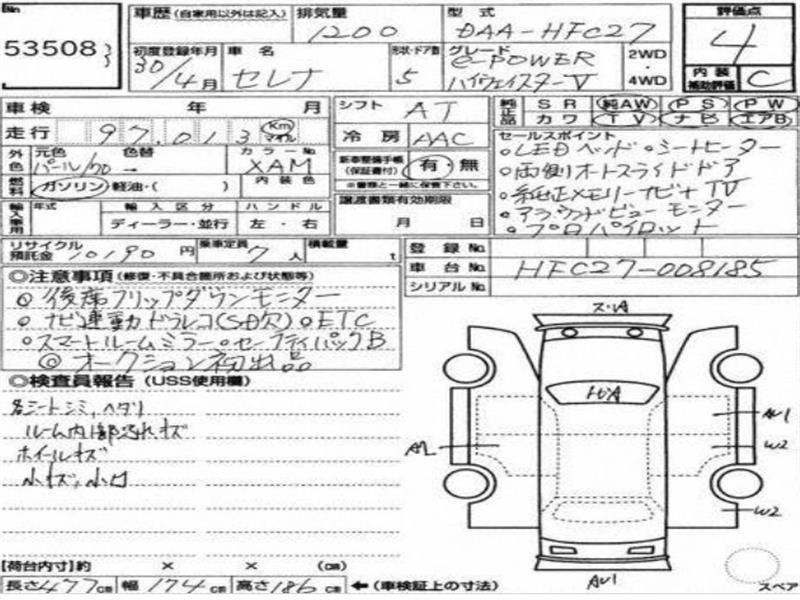 53508
車歴 (自家用以外は記入) 排気量 1200 型式 DAA-HFC27 評価点 4
初度登録年月 30/4月 車名 セレナ 形状・ドア数 5 グレード e-POWER ハイウェイスターV 2WD・4WD 内装補助評価 C
車検 年 月 シフト AT 純正品 SR 純AW PS PW
カワ TV ナビ エアB
走行 97,013 Km マイル 冷房 AAC
外色 元色 パール/クロ 色替 → カラーNo XAM 新車整備手帳(保証書付) 有・無
※書類と一緒に保管下さい。
燃料 ガソリン・軽油・( ) 内装色
輸入車用 年式 輸入区分 ディーラー・並行 ハンドル 左・右 譲渡書類有効期限 月 日
セールスポイント
○LEDヘッド ○シートヒーター
○両側オートスライドドア
○純正メモリーナビナTV
○アラウンドビューモニター
○プロパイロット
リサイクル預託金 10190 円 乗車定員 7人 積載量 t 登録No.
車台No. HFC27-008185
シリアルNo.
◎注意事項 (修復・不具合箇所および状態等)
◎後席フリップダウンモニター
○ナビ連動ドラレコ(SD欠) ○ETC
○スマートルームミラー○セーフティパックB
◎オークション初出品
◎検査員報告 (USS使用欄)
各シートシミ、ヘタリ
ルーム内1部汚れキズ
ホイールキズ
小キズ、小凹
ス・リA
トビA
AU1
A2
W2
W2
AU1
スペア
【荷台内寸】約 × × (cm)
長さ 477cm 幅 174cm 高さ 186cm ←(車検証上の寸法)